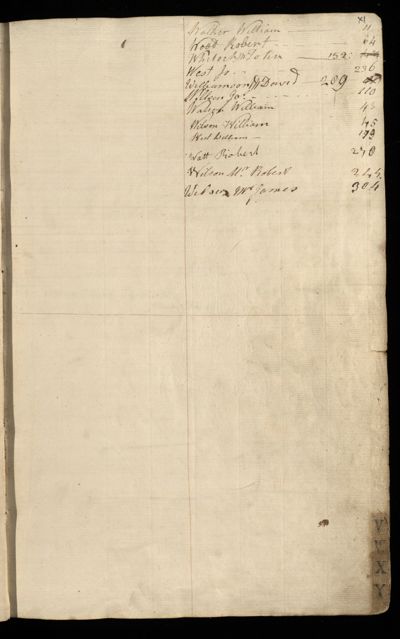 Walker William 11
Wood Robert 64
Whitock Mr John 152
West Jo 236
Williamson David 209
Wilson Jo 110
Walch William 45
Wilson William 45
West William 179
Watt Robert 248
Wilson Mr Robert 244
Wilson Mr James 304
V
W
X
Y